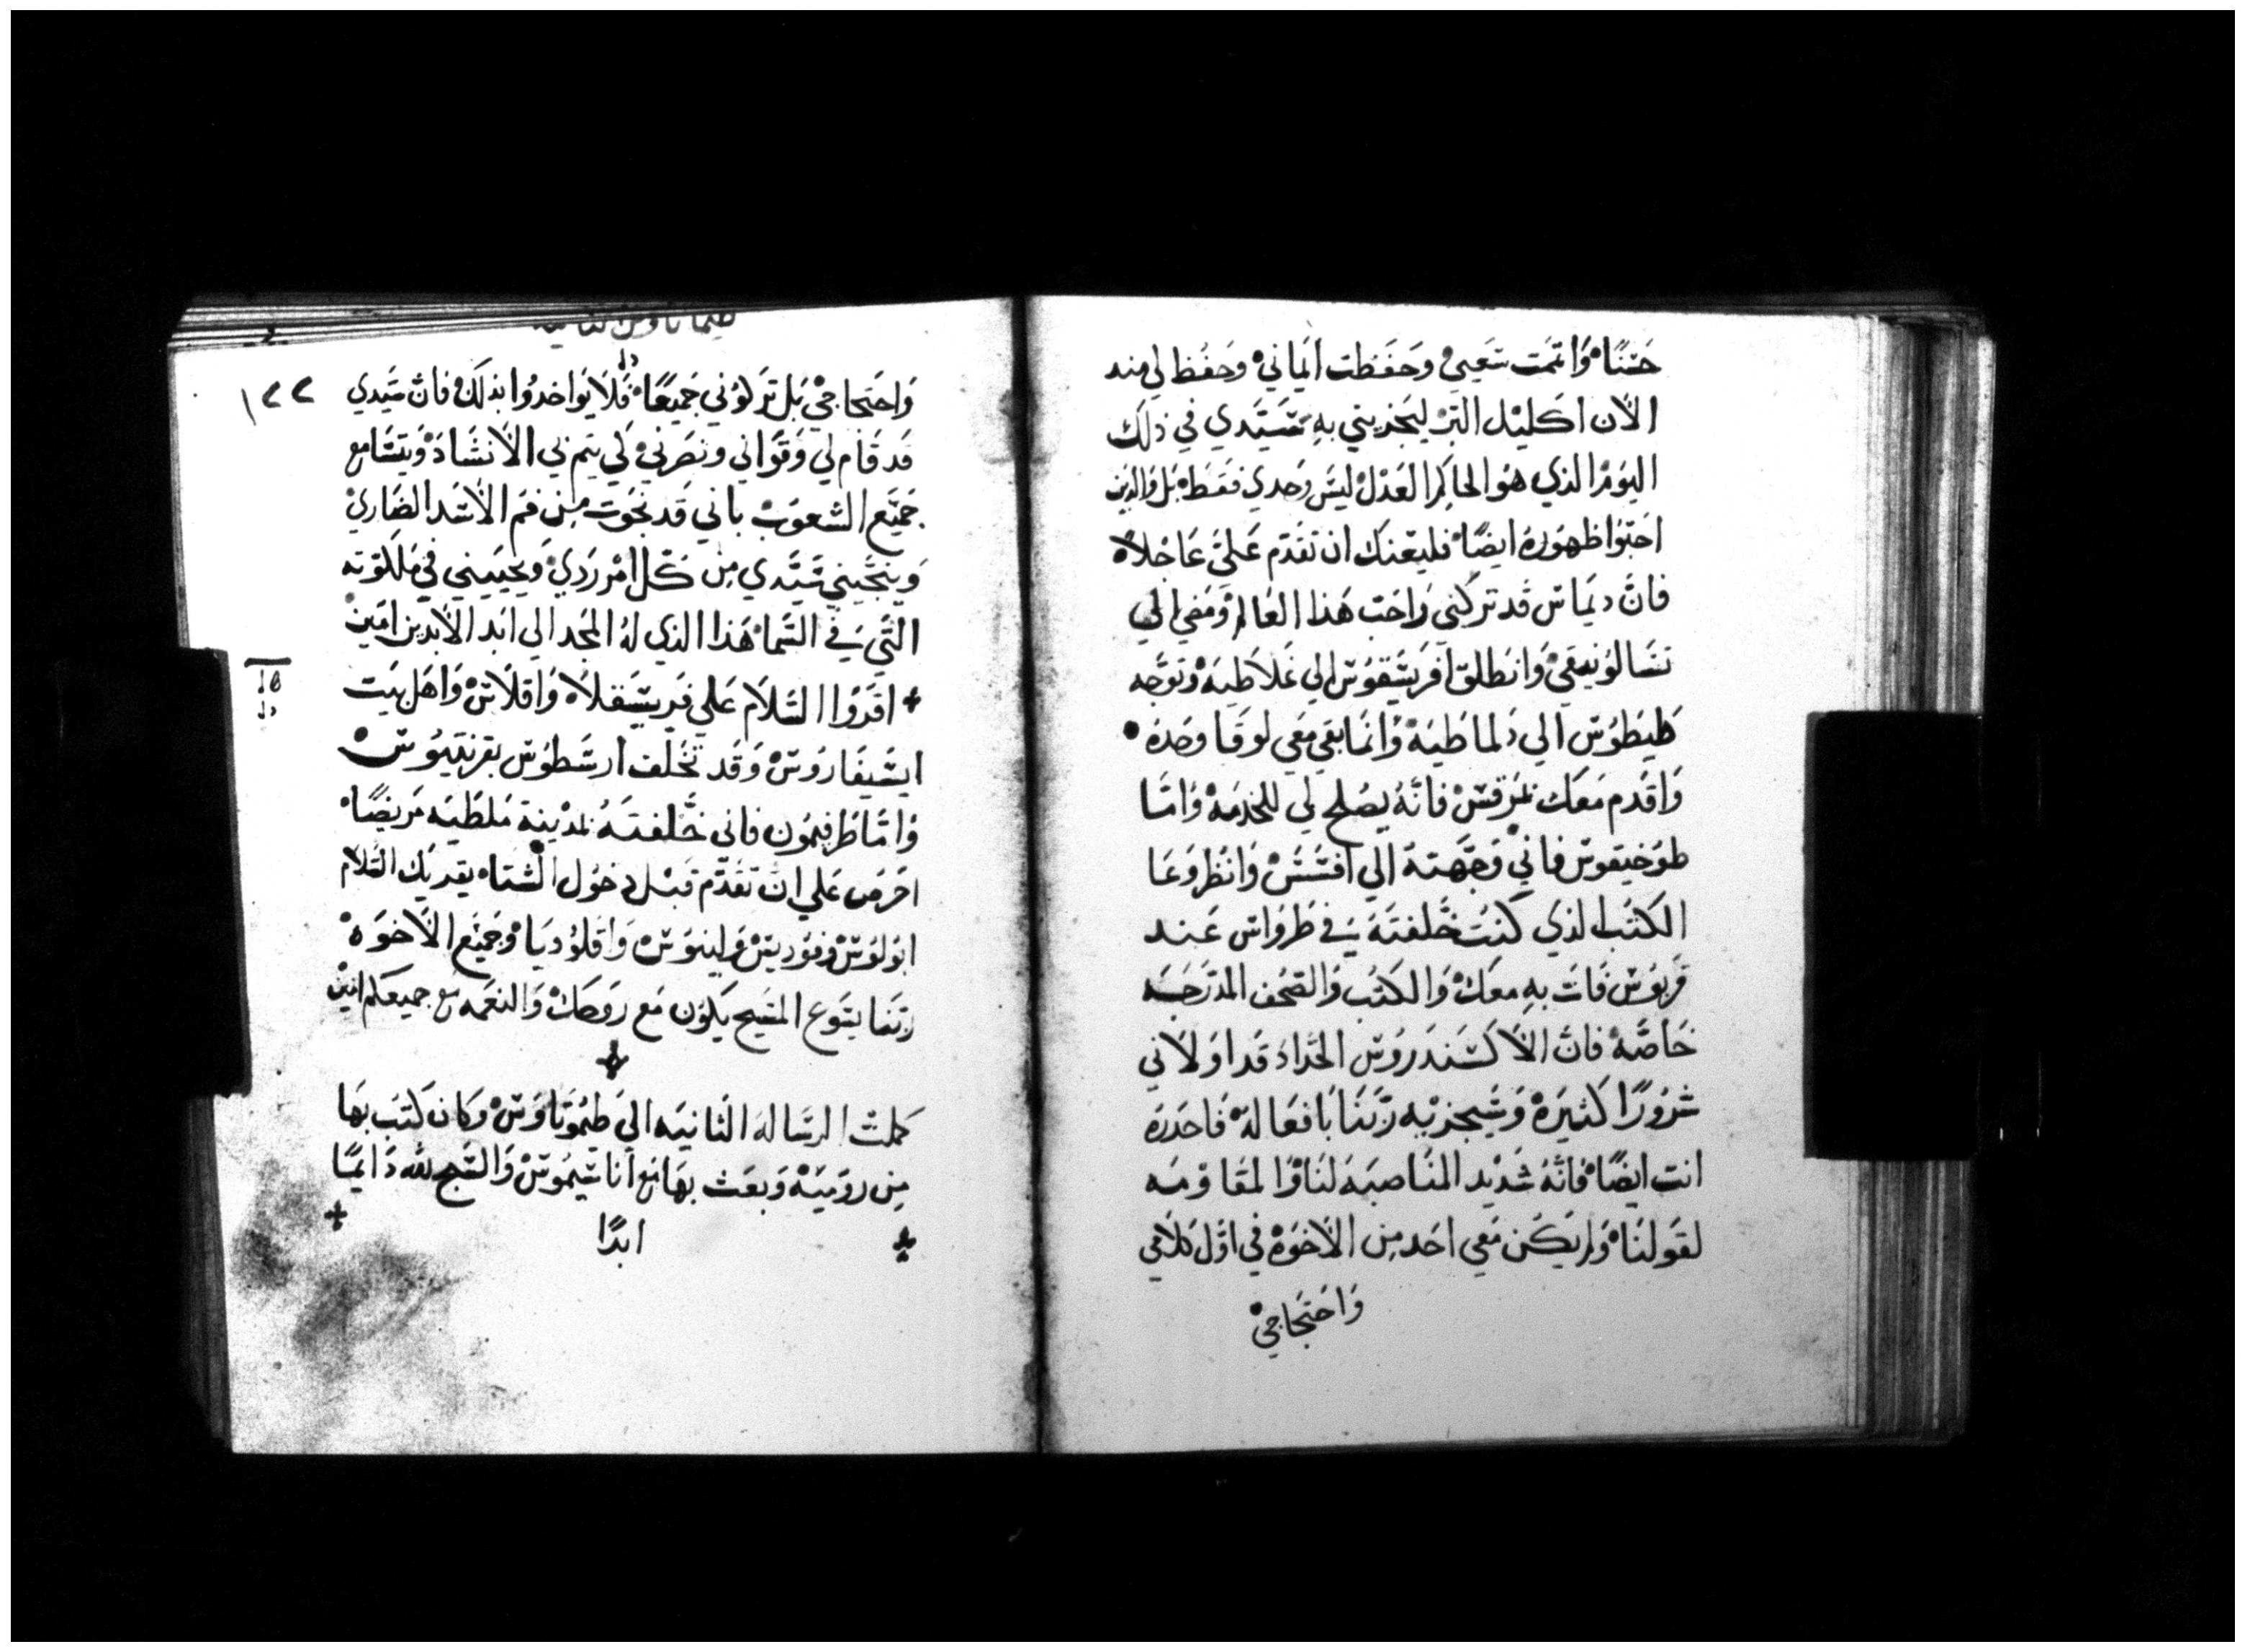 حسنًا وَاتممَت سَعيي وحَفَظت ايماني وحفُظ لي منذ
الان اكليل البر ليجزيني به سَيّدي في ذلك
اليوم الذي هو الحاكم العَدل ليسَ وحدي فقط بل والذين
احبّوا ظهوره ايضًا فليعنك ان تقدم علىّ عَاجلاً
فانّ ديماس قد تركني وَاحَبّ هَذا العَالم ومَضي الي
تسَالونيقي وَانطلق افريسقوس الي غلاطيه وتوجّه
طيطوس الي دلماطيه وَانما بقي معي لوقا وحده
وَاقدم مَعَك بمَرقس فانّه يصلح لي للخدمه وَامّا
طوخيقوس فاني وَجّهته الي افسَسَ وَانظر وعَا
الكتب الذي كنت خَلفته في طرواس عَند
قربوس فات به معك وَالكتب وَالصحف المدرَجَه
خاصّه فان الاكسَندروس الحدّاد قد اولاني
شرورًا كثيرَه وَسَيجزيه ربّنَا بافعَاله فَاحذره
انت ايضًا فانّه شديد المنَاصبَه لنَا وَالمقَاومَه
لقولنَا وَلم يكن مَعي احَد مِن الاخوَه في اوّل كلامي
وَاحتجَاجي
طيماتاوس الثانيه
١٢٢
وَاحتجاجي بَل تركوني جَميعًا فَلا يواخذوا بذلك فانّ سَيّدي
قد قَام لي وَقوّاني ونصَرني لي يتم بي الانشَاد وَيتسَامع
جميَع الشعوب باني قد نجوت مِن فم الاسَد الضَاري
وَينجيني سَيّدي مِن كل امر رَدي وَيحييني في مَلكوته
التّي في السّما هَذا الذي لهُ المجد الي ابَد الابدين امين
اقروا السّلام عَلي فريسقلا وَاقلاس وَاهَل بيت
ايسَيفاروس وَقَد تخَلف ارسَطوس بقرنتيوس
وَامّا طرفيمون فاني خَلفته بمدينة مَلطيَه مَريضًا
احرص عَلي ان تقدّم قبل دخول الشتا يقريك السّلام
ابولوس وفوديس وَلينوس وَاقلوديا وَجميَع الاخوَه
ربّنا يسَوع المسَيح يكون مَع روحك وَالنعمه مع جميعكم امين
كملت الرسَالة الثانيه الي طيموتاوس وكان كتب بهَا
مِن روميَه وَبعَث بهَا مَع اناسيموس وَالسّبح لله دَايمًا
ابدًا